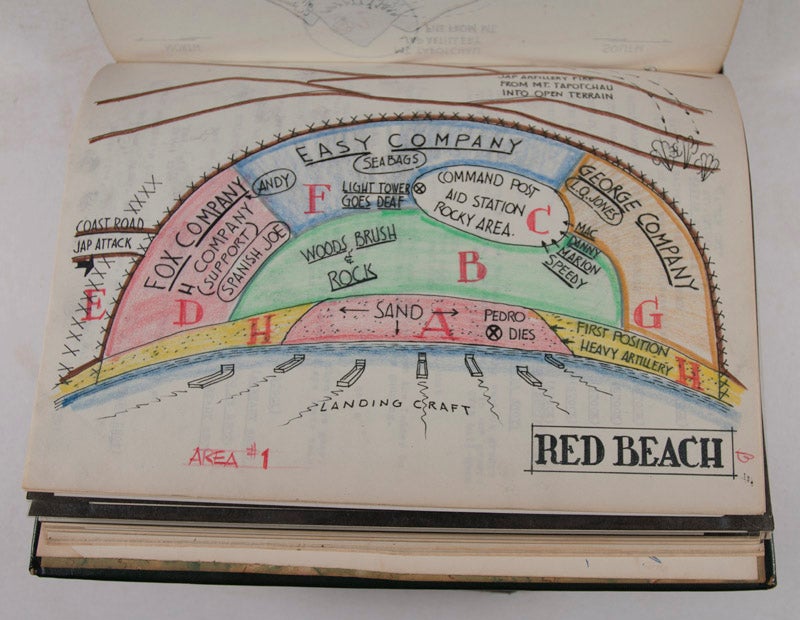 JAP ARTILLERY FIRE
FROM MT. TAPOTCHAU
INTO OPEN TERRAIN
EASY COMPANY
SEABAGS
ANDY
F
LIGHT TOWER
GOES DEAF
COMMAND POST
AID STATION
ROCKY AREA.
C
GEORGE COMPANY
L.Q. JONES
FOX COMPANY
H COMPANY
(SUPPORT)
SPANISH JOE
COAST ROAD
JAP ATTACK
MAC
DANNY
MARION
SPEEDY
WOODS, BRUSH
&
ROCK
B
E
D
G
H
SAND
A
PEDRO
DIES
FIRST POSITION
HEAVY ARTILLERY
H
LANDING CRAFT
AREA #1
RED BEACH